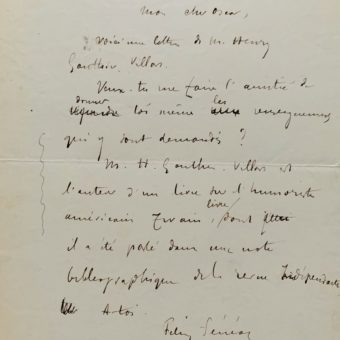 Mon cher Oscar,
voici une lettre de M. Henry
Gauthier-Villars.
Veux-tu me faire l'amitié de
donner toi même les renseignements
qui y sont demandés ?
M. H. Gauthier-Villars est
l'auteur d'un livre sur l'humoriste
américain Twain, livre dont
il a été parlé dans une note
bibliographique de la revue Indépendante
A toi
Félix Fénéon